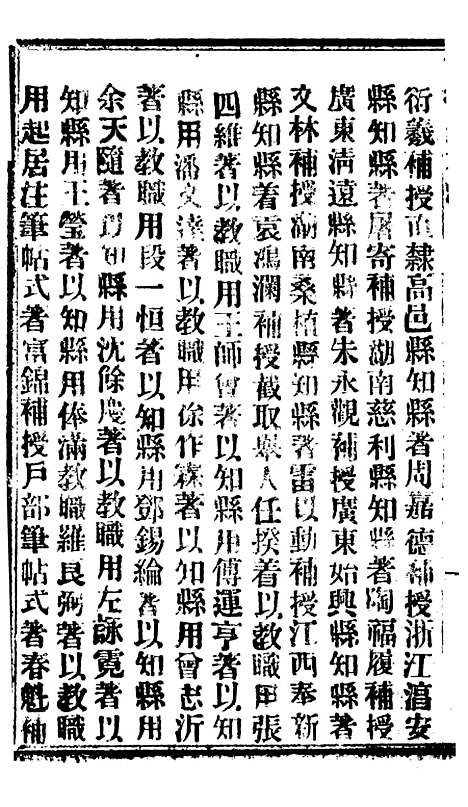 衍羲補授直隸高邑縣知縣著周嘉德補授浙江湻安
縣知縣著屠寄補授湖南慈利縣知縣著陶福履補授
廣東清遠縣知縣著朱永觀補授廣東始興縣知縣著
文林補授湖南桑植縣知縣著雷以動補授江西奉新
縣知縣着袁鴻瀾補授截取舉人任揆着以教職用張
四維著以教職用王師曾著以知縣用傅運亨著以知
縣用潘文濤著以教職用徐作霖著以知縣用曾志沂
著以教職用段一恒著以知縣用鄧錫綸著以知縣用
余天隨著以知縣用沈餘慶著以教職用左詠霓著以
知縣用王瑩著以知縣用俸滿教職羅良弼著以教職
用起居注筆帖式著富錦補授戶部筆帖式著春魁補